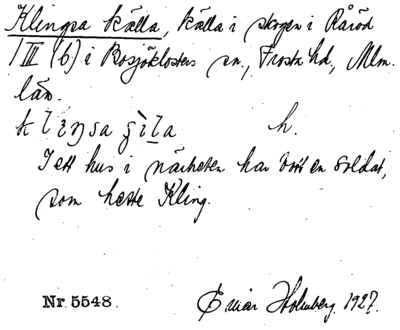 Klingsa källa, källa i skogen i Råröd
1 III (6) i Bosjöklosters sn, Frosta hd, Mlm.
län.
h.
I ett hus i närheten har bott en soldat,
som hette Kling.
Nr 5548. Einar Holmberg. 1927.